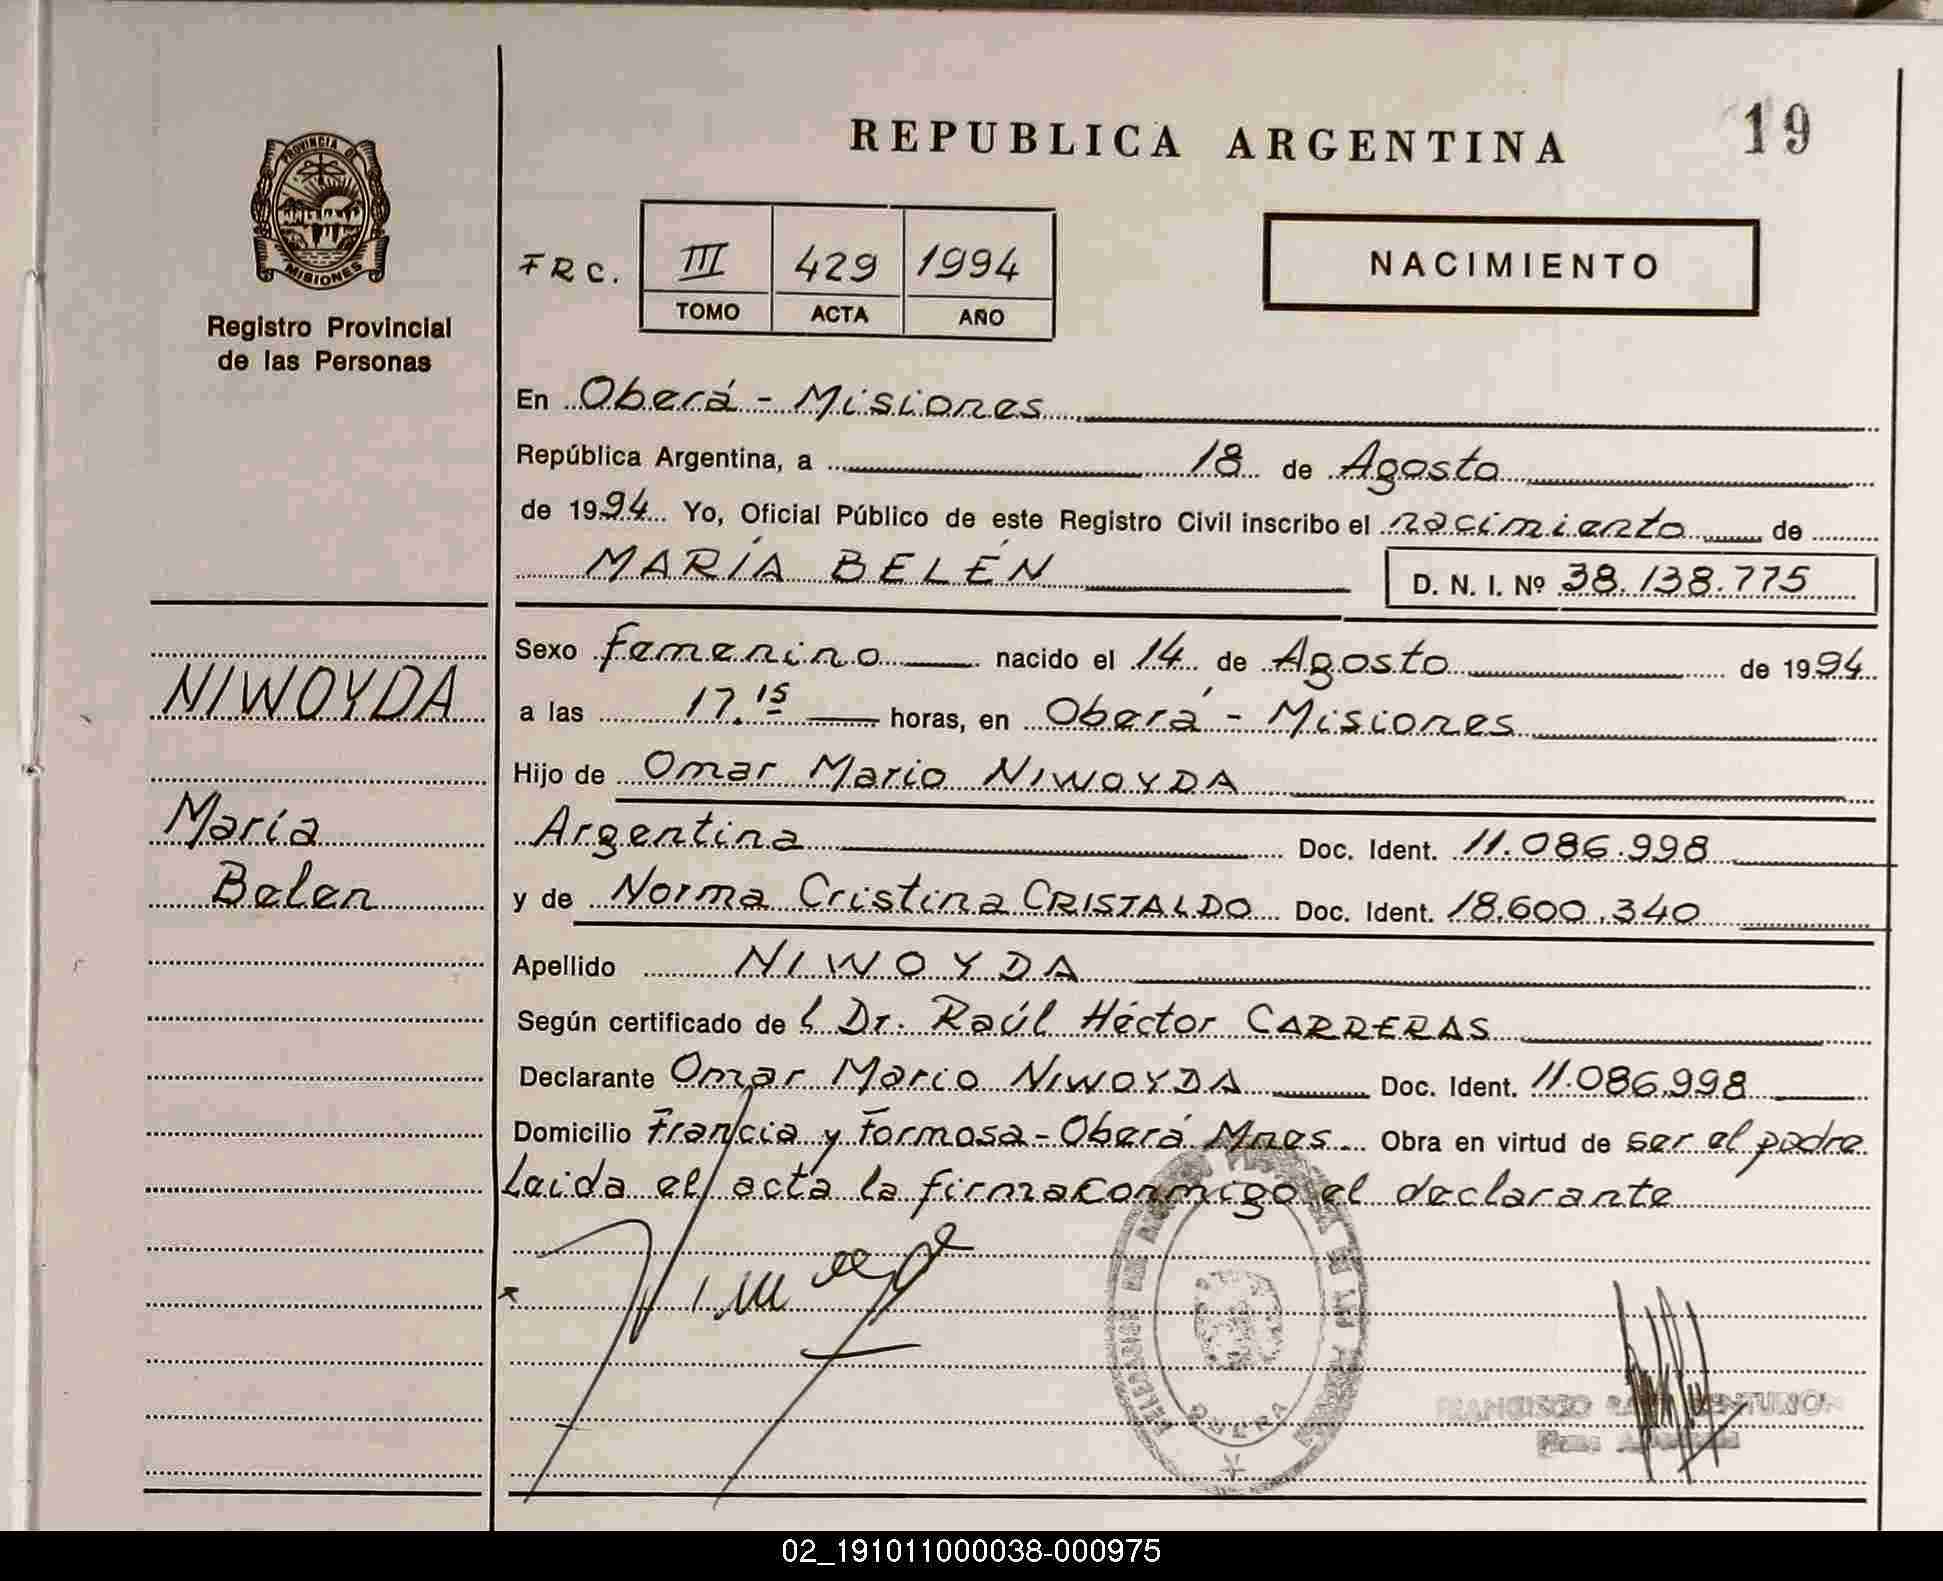 REPUBLICA ARGENTINA
19
PROVINCIA DE
MISIONES
Registro Provincial
de las Personas
FRC.
III 429 1994
TOMO ACTA AÑO
NACIMIENTO
En Oberá - Misiones
República Argentina, a 18 de Agosto
de 1994 Yo, Oficial Público de este Registro Civil inscribo el nacimiento de
MARÍA BELÉN
D. N. I. Nº 38.138.775
Sexo femenino nacido el 14 de Agosto de 1994
NIWOYDA
a las 17.15 horas, en Oberá - Misiones
Hijo de Omar Mario NIWOYDA
María
Argentina Doc. Ident. 11.086.998
Belen
y de Norma Cristina CRISTALDO Doc. Ident. 18.600.340
Apellido NIWOYDA
Según certificado de l Dr. Raúl Héctor CARRERAS
Declarante Omar Mario NIWOYDA Doc. Ident. 11.086.998
Domicilio Francia y Formosa - Oberá Mnes Obra en virtud de ser el padre
Leida el acta la firma conmigo el declarante
OBERA
FRANCISCO CENTURION
02_191011000038-000975